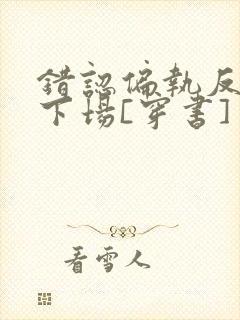 錯認偏執反
下場[穿書]
看雪人